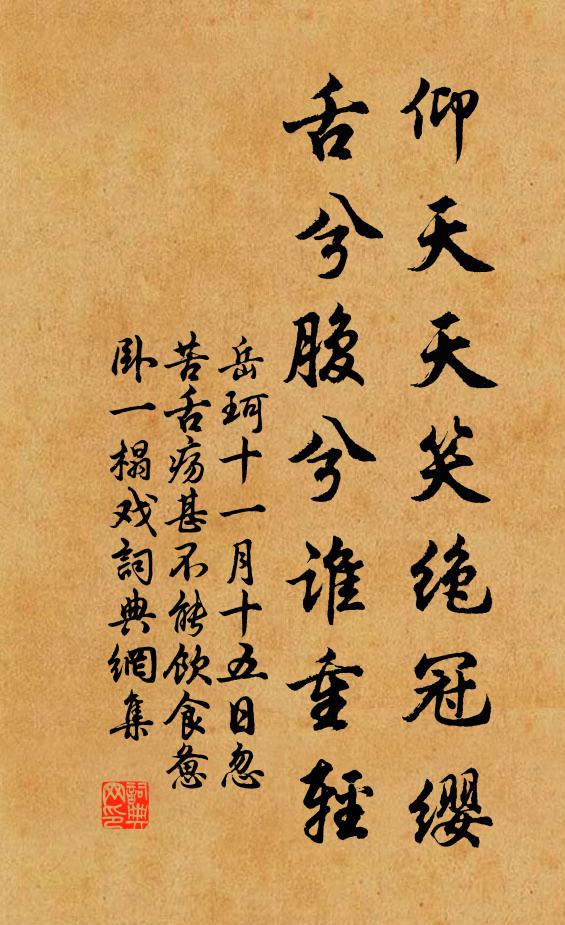 仰天天笑绝冠缨
舌兮腹兮谁重轻
岳珂十一月十五日忽
苦舌疡甚不能饮食惫
卧一榻戏詞典網集
詞典
网印